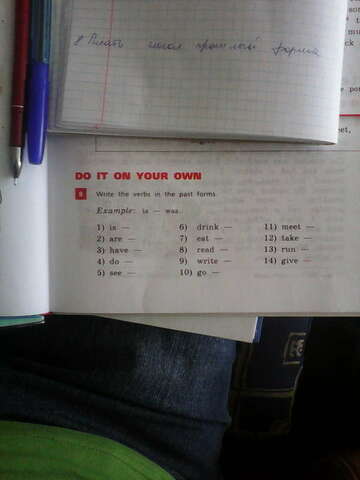 8 Писать глагол прошлой форма
DO IT ON YOUR OWN
8 Write the verbs in the past forms.
Example: is — was.
1) is —
2) are —
3) have —
4) do —
5) see —
6) drink —
7) eat —
8) read —
9) write —
10) go —
11) meet —
12) take —
13) run —
14) give —